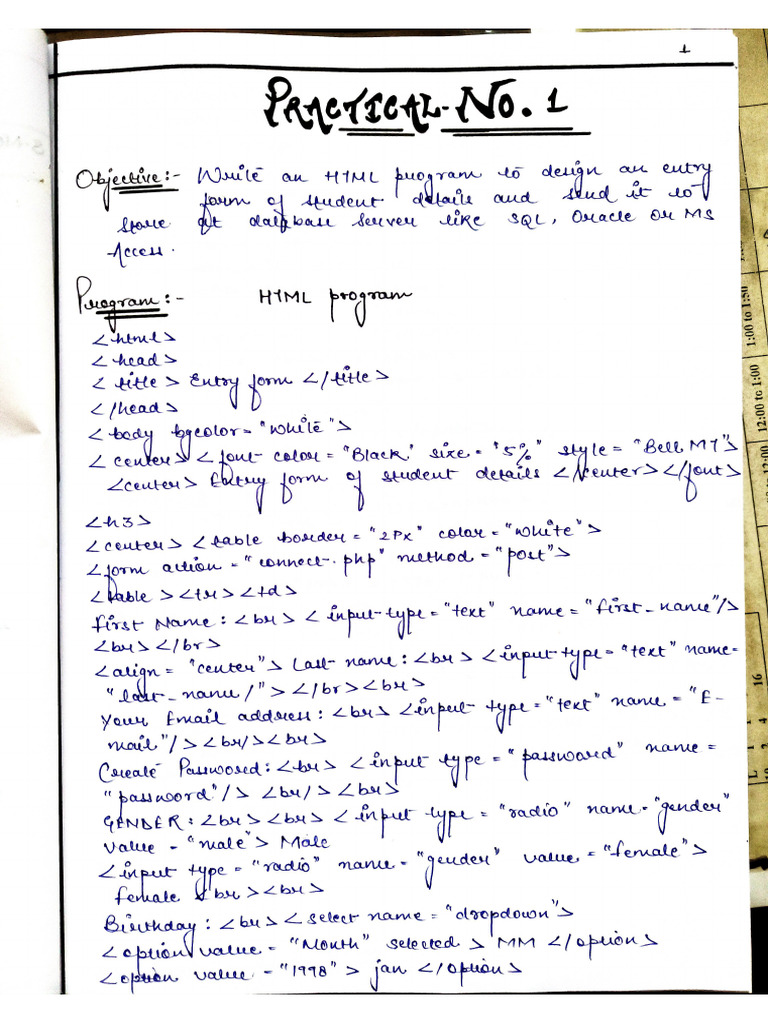 1
PRACTICAL-NO. 1
Objective:- Write an HTML program to design an entry
form of student details and send it to
store at database server like SQL, Oracle or MS
Access.
Program:- HTML program
<html>
<head>
<title> Entry form </title>
</head>
<body bgcolor="white">
<center> <font color="Black" size="5%" style="Bell MT">
<center> Entry form of student details </center> </font>
<h3>
<center> <table border="2Px" color="white">
<form action="connect.php" method="post">
<table><tr><td>
First Name:<br> <input type="text" name="first_name"/>
<br></br>
<align="center"> Last name:<br> <input type="text" name=
"last_name/"></br><br>
Your Email address:<br> <input type="text" name="E-
mail"/><br/><br>
Create Password:<br> <input type="password" name=
"password"/> <br/><br>
GENDER:<br><br> <input type="radio" name="gender"
value="male"> Male
<input type="radio" name="gender" value="female">
female <br><br>
Birthday:<br> <select name="dropdown">
<option value="Month" selected> MM </option>
<option value="1998"> jan </option>
1:00 to 1:50
12:00 to 1:00
16